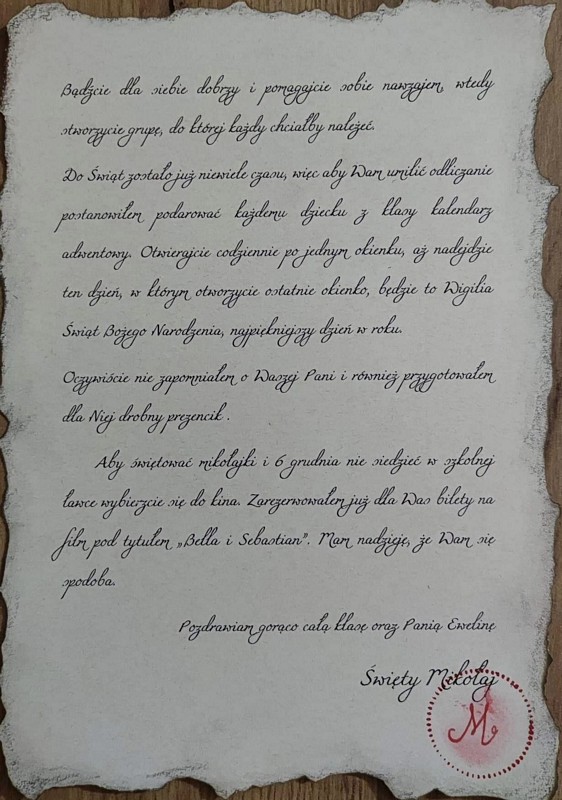 Bądźcie dla siebie dobrzy i pomagajcie sobie nawzajem, wtedy
stworzycie grupę, do której każdy chciałby należeć.
Do Świąt zostało już niewiele czasu, więc aby Wam umilić odliczanie
postanowiłem podarować każdemu dziecku z klasy kalendarz
adwentowy. Otwierajcie codziennie po jednym okienku, aż nadejdzie
ten dzień, w którym otworzycie ostatnie okienko, będzie to Wigilia
Świąt Bożego Narodzenia, najpiękniejszy dzień w roku.
Oczywiście nie zapomniałem o Waszej Pani i również przygotowałem
dla Niej drobny prezencik .
Aby świętować mikołajki i 6 grudnia nie siedzieć w szkolnej
ławce wybierzcie się do kina. Zarezerwowałem już dla Was bilety na
film pod tytułem „Bella i Sebastian”. Mam nadzieję, że Wam się
spodoba.
Pozdrawiam gorąco całą klasę oraz Panią Ewelinę
Święty Mikołaj
M